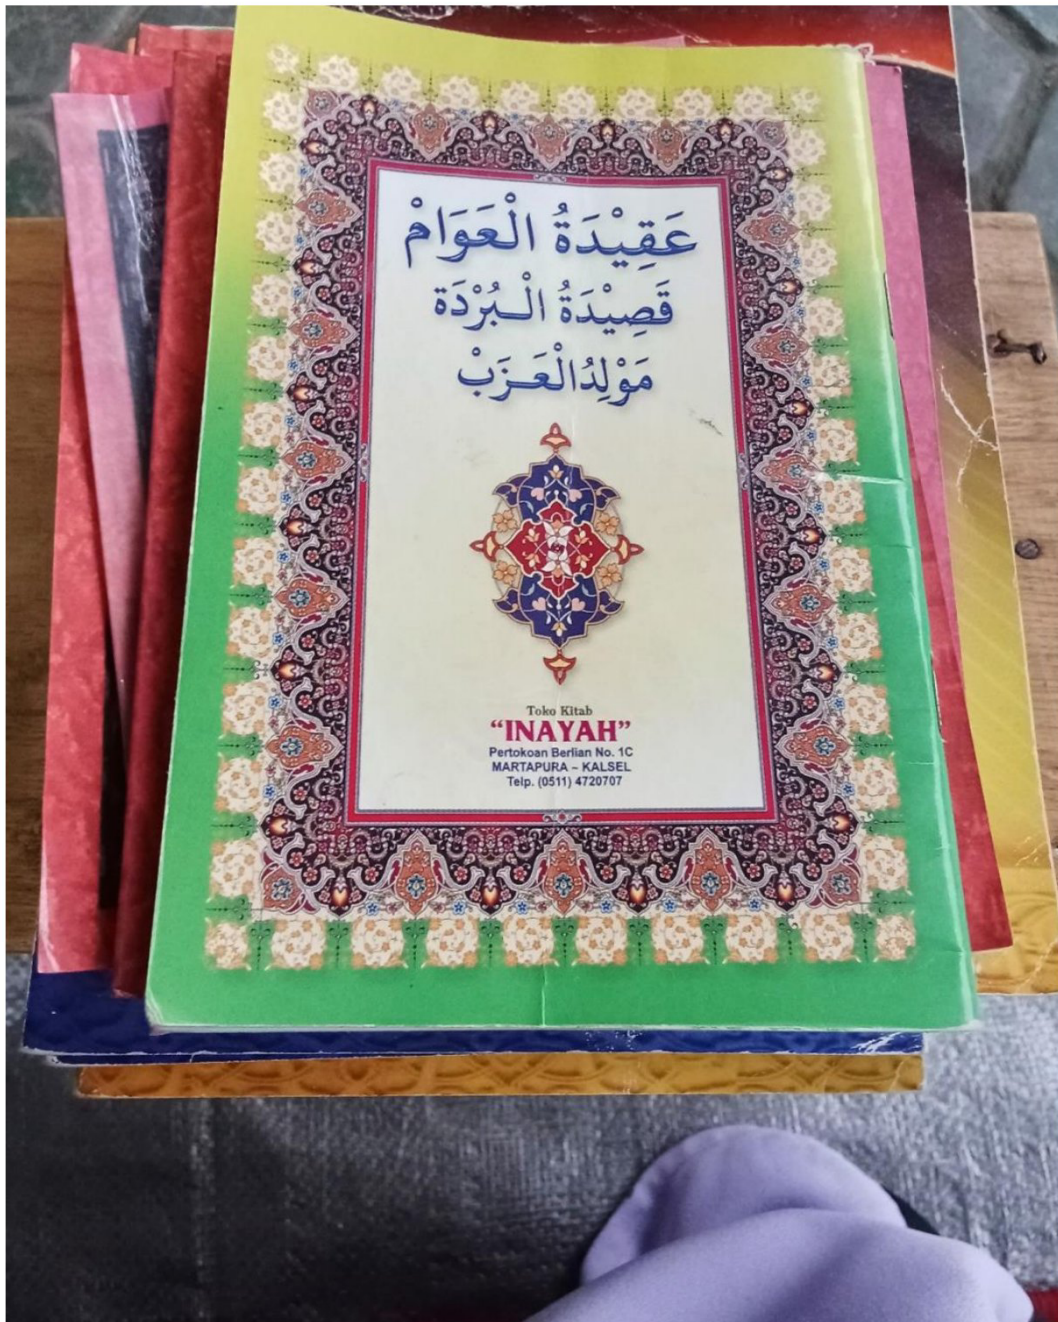 عَقِيْدَةُ الْعَوَامْ
قَصِيْدَةُ الْبُرْدَة
مَوْلِدُ الْعَزَبْ
Toko Kitab
“INAYAH”
Pertokoan Berlian No. 1C
MARTAPURA – KALSEL
Telp. (0511) 4720707